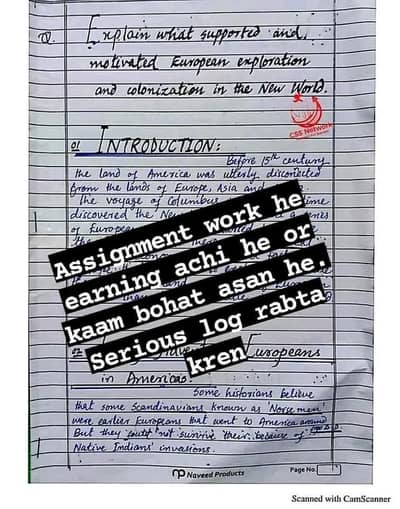 Q. Explain what supported and
motivated European exploration
and colonization in the New World.
CSS Network
01 INTRODUCTION:
Before 15th century
the land of America was utterly disconnected
from the lands of Europe, Asia and
The voyage of Columbus
discovered the New
of Europe
Assignment work he
earning achi he or
kaam bohat asan he.
Serious log rabta
kren
Europeans
in Americas:
Some historians believe
that some Scandinavians known as 'Norse men'
were earlier Europeans that went to America around
But they could not survive their because of
Native Indians' invasions.
np Naveed Products
Page No.
Scanned with CamScanner